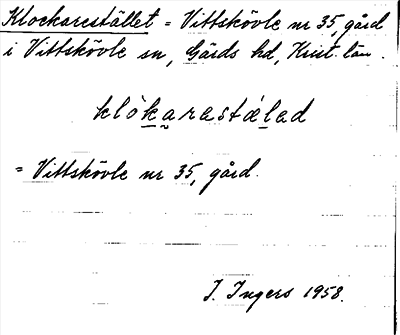 Klockarestället = Vittskövle nr 35, gård
i Vittskövle sn, Gärds hd, Krist. län.
klò̱ka̱rastä̀lad
= Vittskövle nr 35, gård.
I. Ingers 1958.